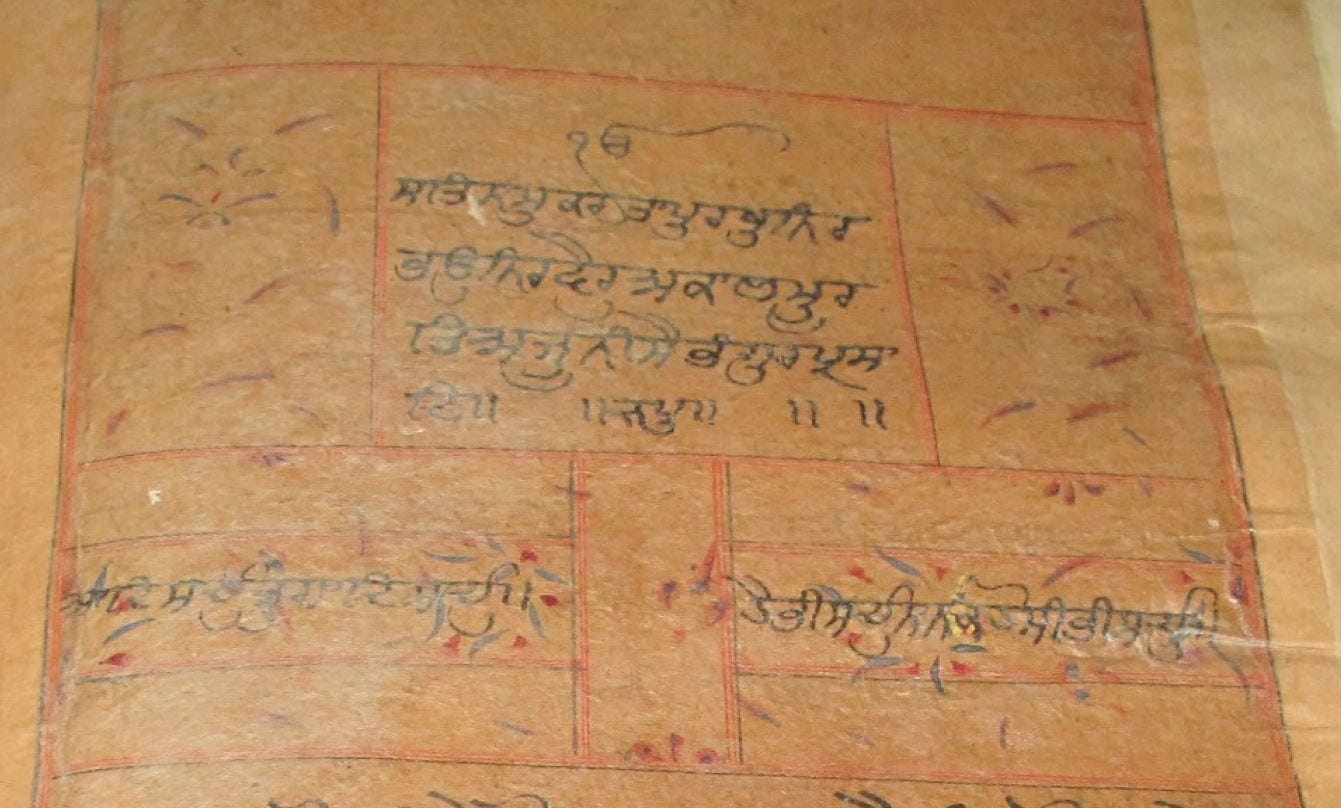 ੴ
ਸਤਿਨਾਮੁਕਰਤਾਪੁਰਖੁਨਿਰ
ਭਉਨਿਰਵੈਰੁਅਕਾਲਮੂਰ
ਤਿਅਜੂਨੀਸੈਭੰਗੁਰਪ੍ਰਸਾ
ਦਿ॥ ॥ਜਪੁ॥ ॥ ॥
ਆਦਿਸਚੁਜੁਗਾਦਿਸਚੁ॥
ਹੈਭੀਸਚੁਨਾਨਕਹੋਸੀਭੀਸਚੁ॥